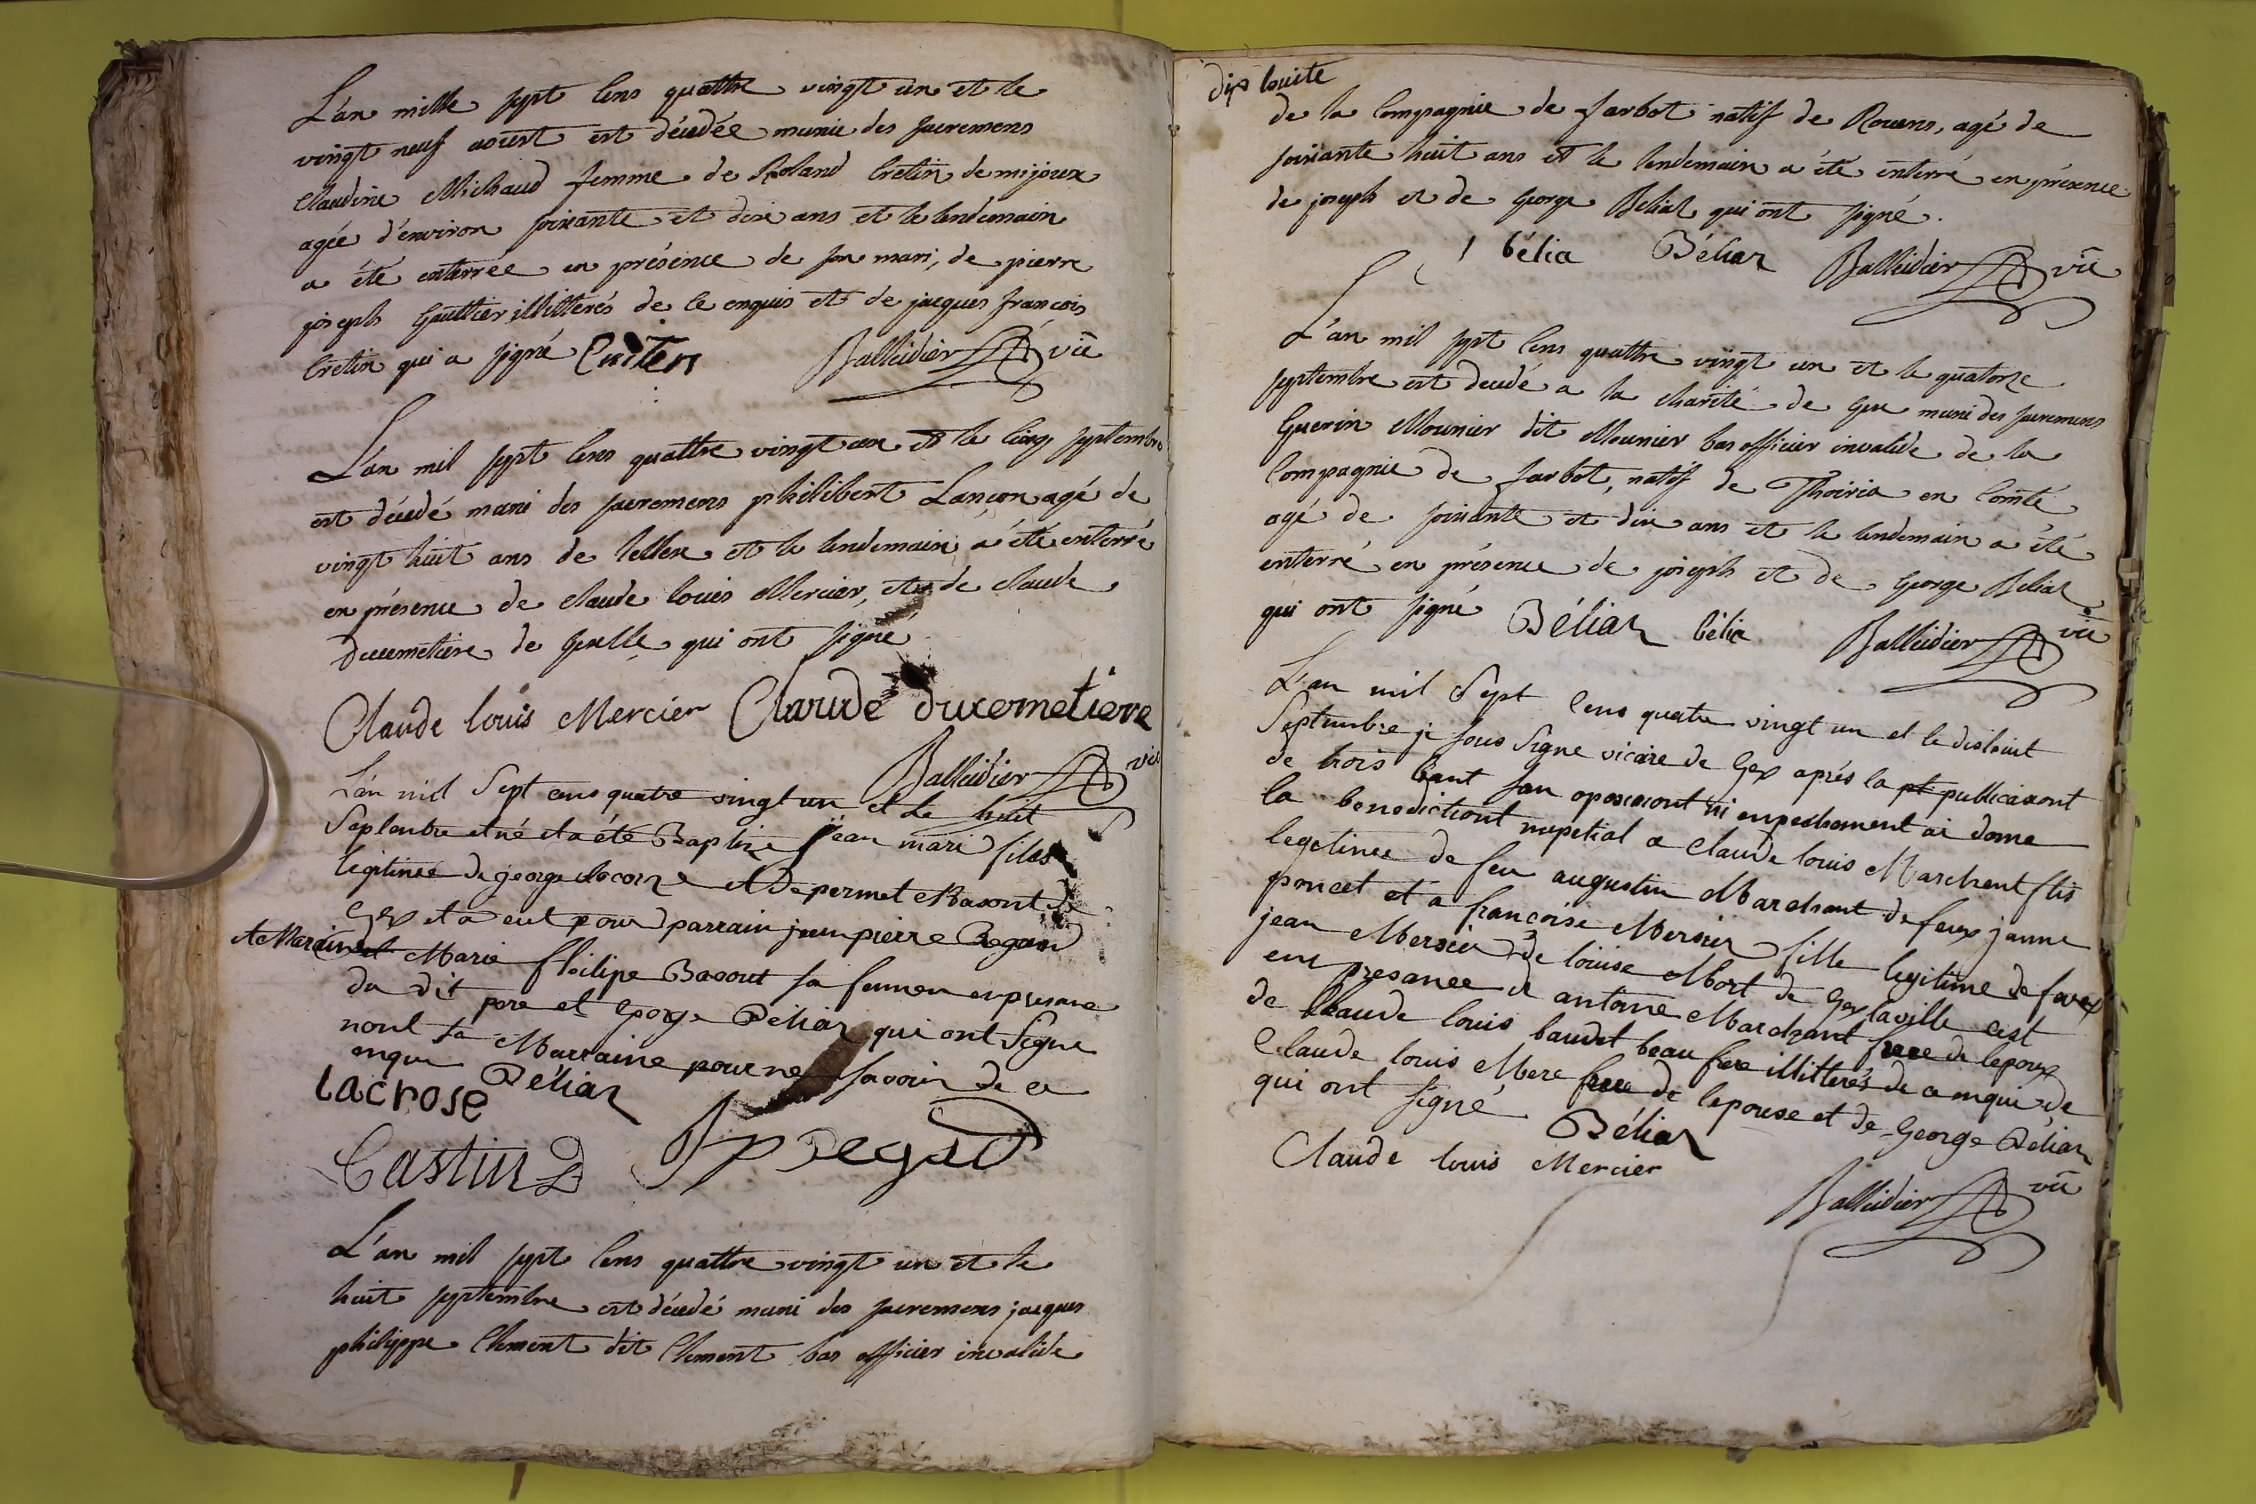 L'an mille sept cens quattre vingt un et le
vingt neuf aoust est décédée munie des sacremens
Claudine Michaud femme de Roland Cretin de mijoux
agée d'environ soixante et dix ans et le lendemain
a été enterrée en présence de son mari, de pierre
joseph Gauttier illitterés de ce enquis et de jacques françois
Cretin qui a signé Cretin Balleidier vic
L'an mil sept cens quattre vingt un et le cinq septembre
est décédé muni des sacremens philibert Lançon agé de
vingt huit ans de lellex et le lendemain a été enterré
en présence de claude louis Mercier, et de claude
Ducemetiere de Gexlle qui ont signé
Claude louis Mercier Claude ducemetiere
Balleidier vic
L'an mil Sept cens quatre vingt un et le huit
Septenbre et né et a été Baptize jean mari fils
legitimée de george et de pernet Basont de
Gex et a eut pour parrain jean pierre Regard
et Maraine et Marie philipe Basout sa femen en presane
du dit pere et George Béliar qui ont Signe
nont la Marraine pour ne savoir de ce
enqui Béliar
Lacrose
Castin JP Regard
L'an mil sept cens quattre vingt un et le
huit septembre est décédé muni des sacremens jacques
philippe Clement dit Clement bas officier invalide
dix houite
de la Compagnie de Jarbot natif de Rouens, agé de
soixante huit ans et le lendemain a été enterré en présence
de joseph et de George Béliar qui ont signé.
J bélia Béliar Balleidier vic
L'an mil sept cens quattre vingt un et le quatorze
septembre est décédé a la charité de Gex muni des sacremens
Guerin Mounier dit Mounier bas officier invalide de la
Compagnie de Jarbot, natif de Thoiria en Comté
agé de soixante et dix ans et le lendemain a été
enterré en présence de joseph et de George Béliar
qui ont signé Béliar bélia Balleidier vic
L'an mil Sept Cens quatre vingt un et le dishuit
Septembre je sous Signe vicaire de Gex aprés la pt publicasont
de trois bant san oposisiont ni enpechement ai done
la benedictiont nupetial a Claude louis Marchent fils
legetimee de feu augustin Marchant de feux janne
poncet et a francoise Mersier fille legitime de feux
jean Mersier de louise Mort de Gex la ville cest
en presanee d antoine Marchant frere de lepoux
de Claude louis baudet beau frere illitterés de ce enqui de
Claude louis Mere frere de lepouse et de George Béliar
qui ont signé Béliar
Claude louis Mercier
Balleidier vic